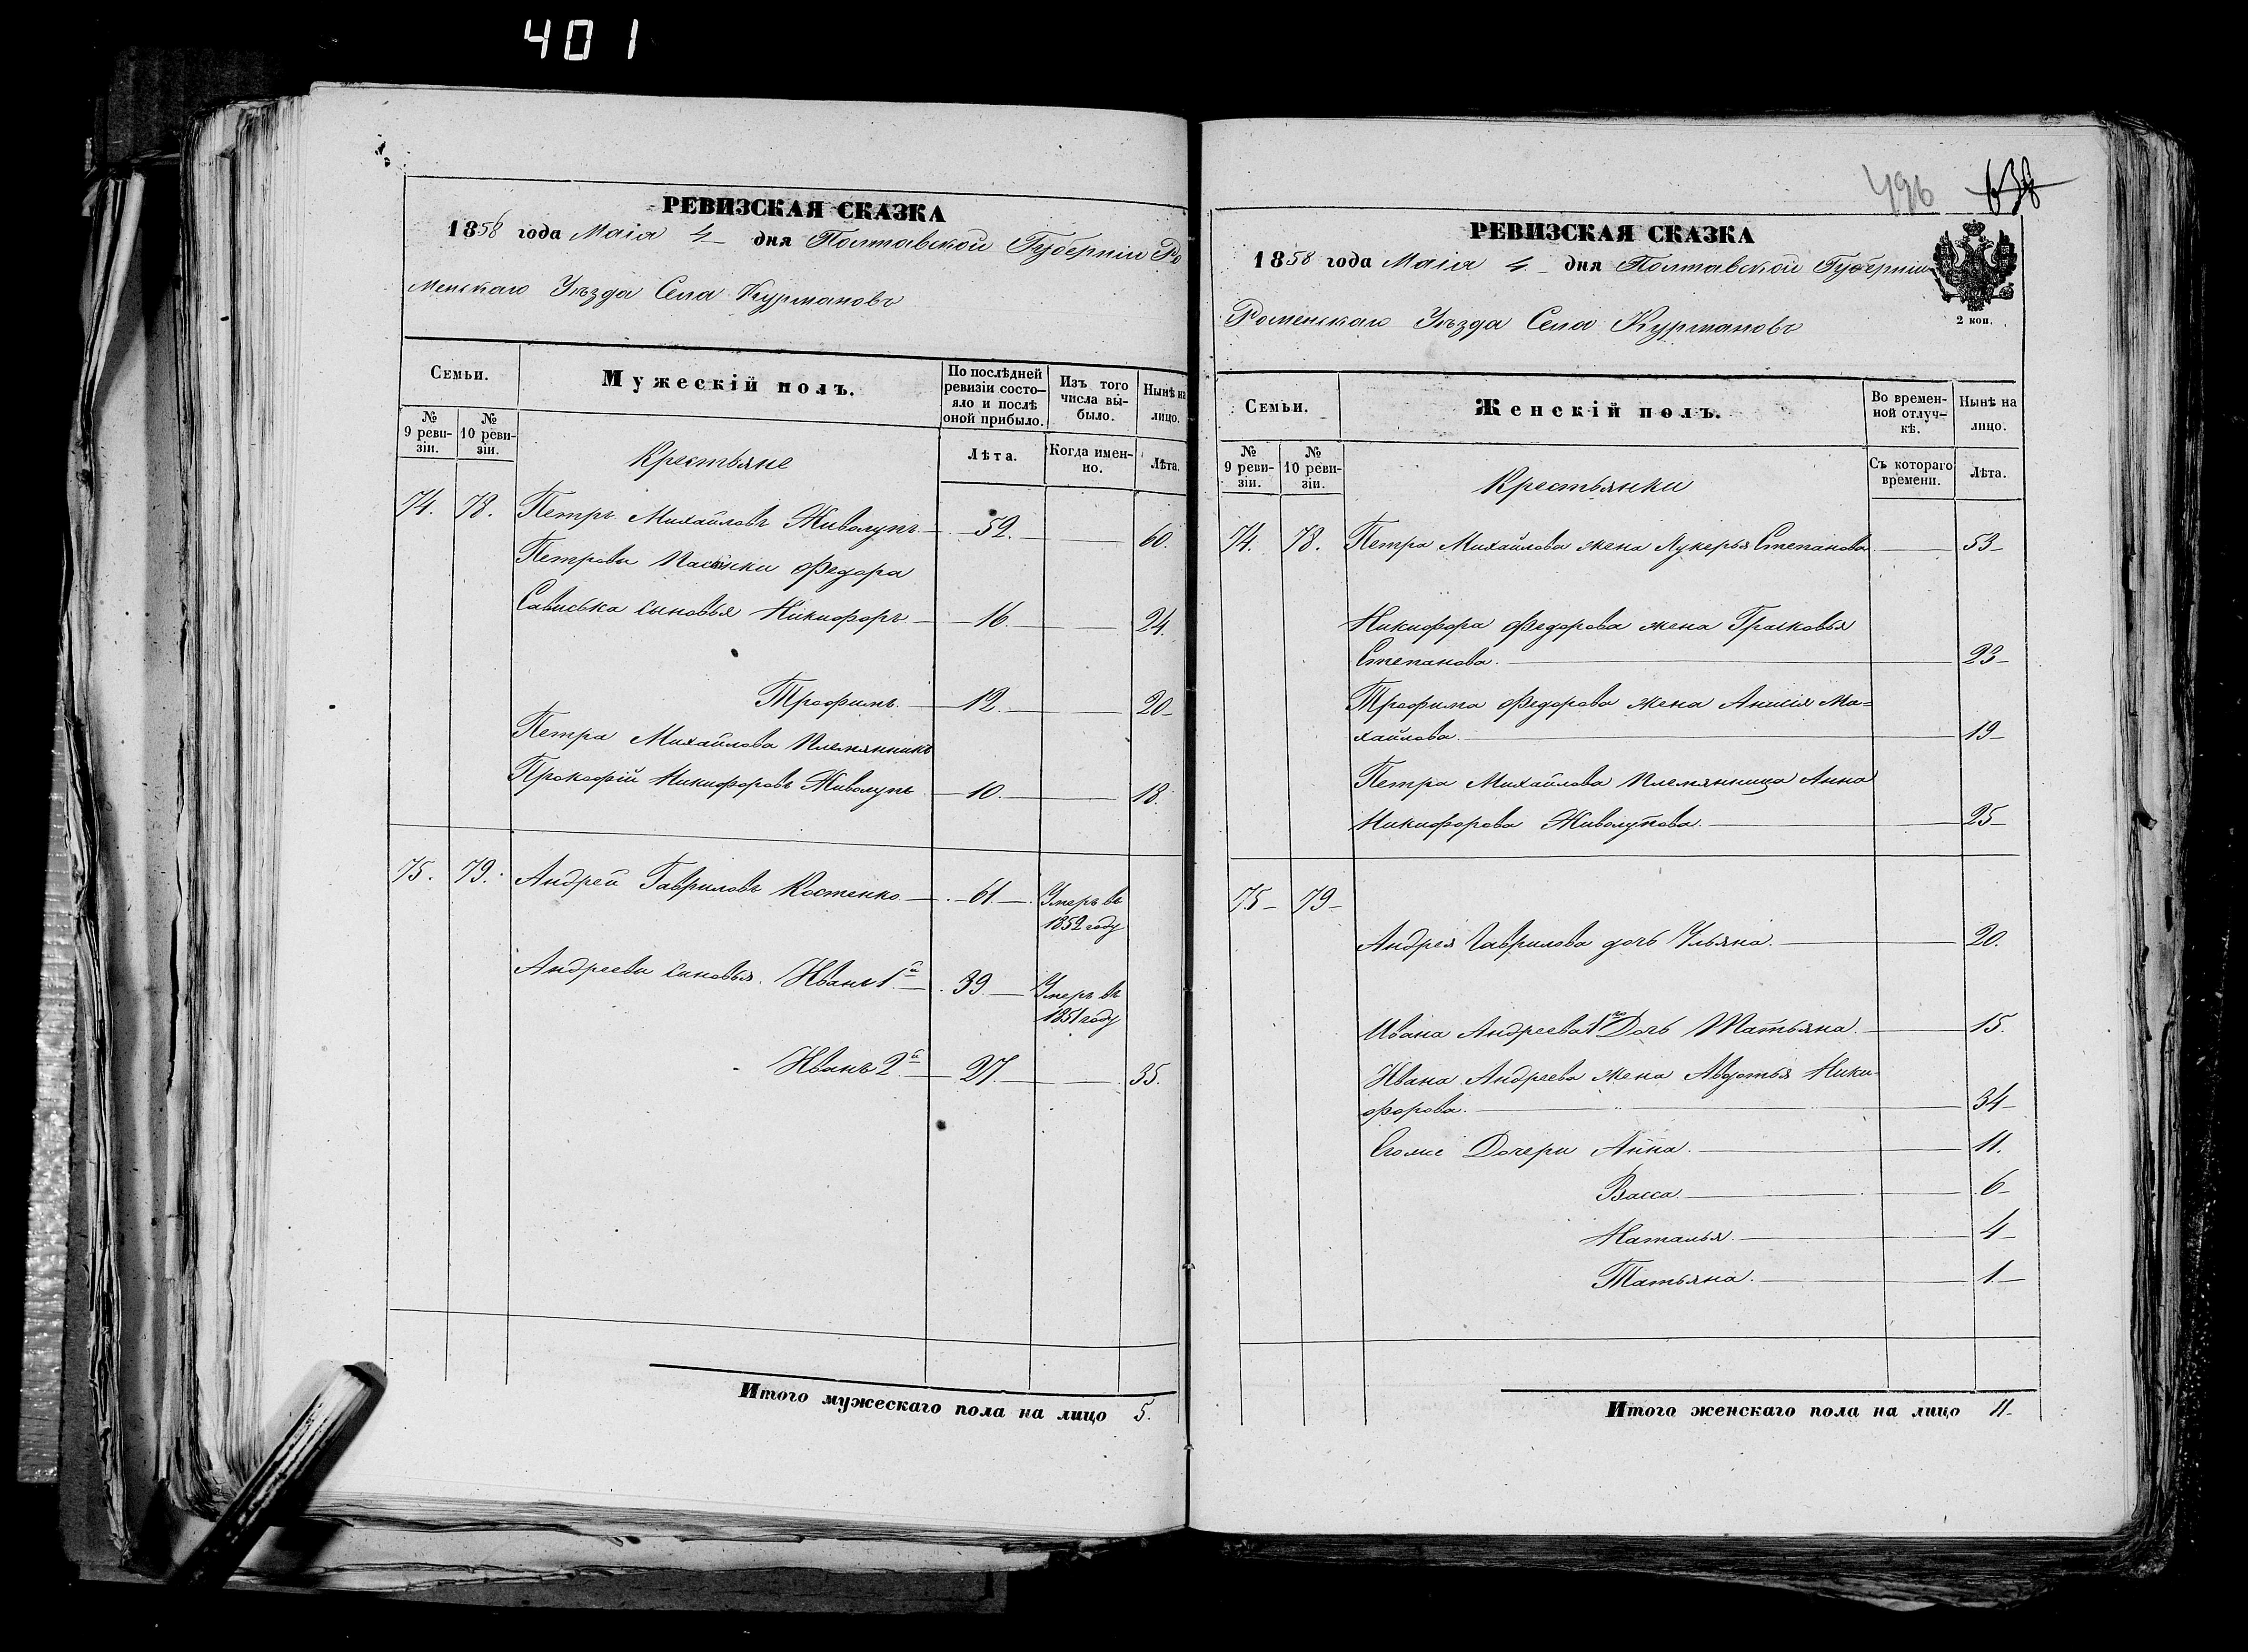 401
РЕВИЗСКАЯ СКАЗКА
1858 года Маія 4 дня Полтавской Губерніи Ро
менскаго Уѣзда Села Курмановъ
Семьи.
Мужескій полъ.
По послѣдней ревизіи состо-яло и послѣ оной прибыло.
Изъ того числа вы-было.
Нынѣ на лицо.
№ 9 реви-зіи.
№ 10 реви-зіи.
Крестьяне
Лѣта.
Когда имен-но.
Лѣта.
74. 78. Петръ Михайловъ Живолупъ 52. 60.
Петровы Пасынки Федора
Сависька сыновья Никифоръ 16. 24.
Трофимъ. 12. 20
Петра Михайлова Племянникъ
Прокофій Никифоровъ Живолупъ 10. 18.
75. 79. Андрей Гавриловъ Костенко 61 Умеръ въ
1852 году
Андреевы сыновья. Иванъ 1й 39 Умеръ въ
1851 году
Иванъ 2й 27. 35.
Итого мужескаго пола на лицо 5.
496 638
РЕВИЗСКАЯ СКАЗКА
1858 года Маія 4 дня Полтавской Губерніи
Роменскаго Уѣзда Села Курмановъ
2 коп.
Семьи.
Женскій полъ.
Во времен-ной отлуч-кѣ.
Нынѣ на лицо.
№ 9 реви-зіи.
№ 10 реви-зіи.
Крестьянки
Съ котораго времени.
Лѣта.
74. 78. Петра Михайлова жена Лукерья Степанова 53
Никифора Федорова жена Прасковья
Степанова. 23
Трофима Федорова жена Анисія Ми=
хайлова. 19
Петра Михайлова Племянница Анна
Никифорова Живолупова. 25
75 79
Андрея Гаврилова дочь Ульяна. 20.
Ивана Андреева 1го Дочь Татьяна. 15.
Ивана Андреева жена Авдотья Ники-
форова. 34
Егоже Дочери Анна. 11.
Васса. 6
Наталья. 4
Татьяна. 1
Итого женскаго пола на лицо 11.